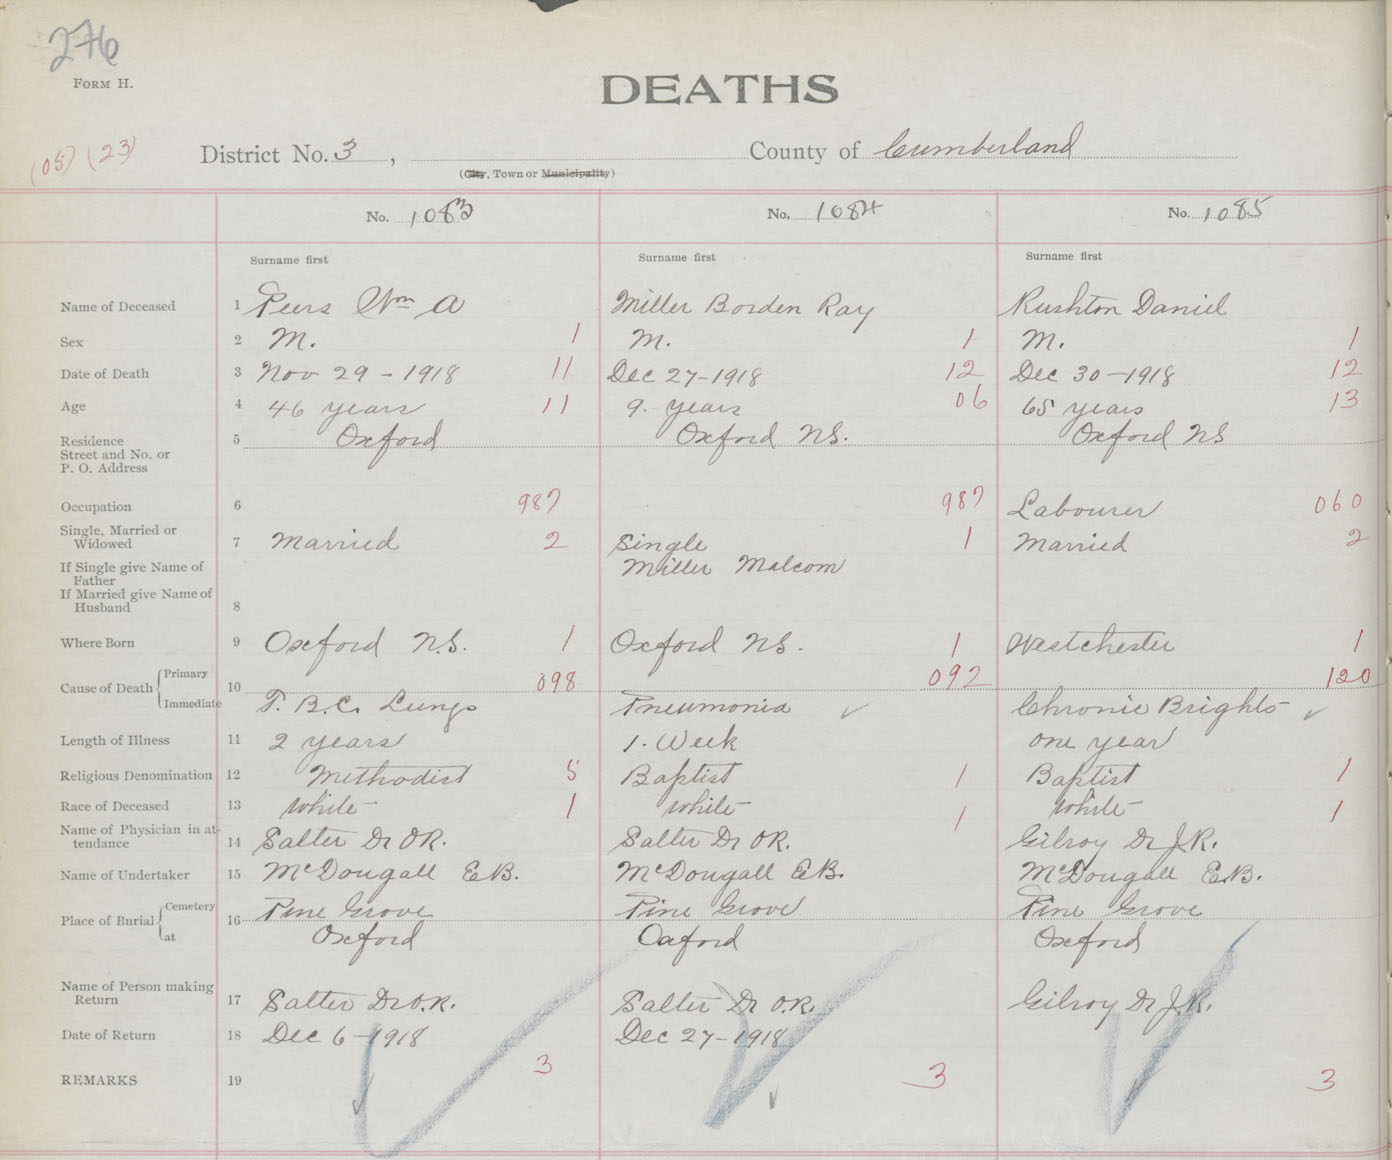 276
FORM H.
DEATHS
(05) (23)
District No. 3, County of Cumberland
(City, Town or Municipality)
No. 1083 No. 1084 No. 1085
Surname first Surname first Surname first
Name of Deceased 1 Peers Wm A Miller Borden Ray Rushton Daniel
Sex 2 M. 1 M. 1 M. 1
Date of Death 3 Nov 29 - 1918 11 Dec 27-1918 12 Dec 30-1918 12
Age 4 46 years 11 9. years 06 65 years 13
Residence
Street and No. or
P. O. Address 5 Oxford Oxford NS. Oxford NS
Occupation 6 987 987 Labourer 060
Single, Married or
Widowed 7 Married 2 Single 1 Married 2
If Single give Name of
Father Miller Malcom
If Married give Name of
Husband 8
Where Born 9 Oxford N.S. 1 Oxford NS. 1 Westchester 1
Cause of Death Primary 10 098 092 120
Immediate T. B.C. Lungs Pneumonia ✓ Chronic Brights ✓
Length of Illness 11 2 years 1. Week one year
Religious Denomination 12 Methodist 5 Baptist 1 Baptist 1
Race of Deceased 13 white 1 white 1 white 1
Name of Physician in at-
tendance 14 Salter Dr OR. Salter Dr OR. Gilroy Dr J.R.
Name of Undertaker 15 McDougall E.B. McDougall E.B. McDougall E.B.
Place of Burial Cemetery 16 Pine Grove Pine Grove Pine Grove
at Oxford Oxford Oxford
Name of Person making
Return 17 Salter Dr O.R. Salter Dr O.R. Gilroy Dr J.R.
Date of Return 18 Dec 6-1918 Dec 27-1918
REMARKS 19 3 3 3